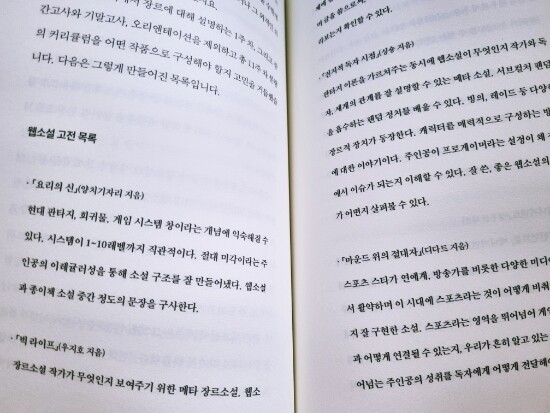 에서 장르에 대해 설명하는 1주 차, 그리고 중
간고사와 기말고사, 오리엔테이션을 제외하고 총 11주 차 분량
의 커리큘럼을 어떤 작품으로 구성해야 할지 고민을 거듭했습
니다. 다음은 그렇게 만들어진 목록입니다.
웹소설 고전 목록
·『요리의 신』(양치기자리 지음)
현대 판타지, 회귀물, 게임 시스템 창이라는 개념에 익숙해질 수
있다. 시스템이 1~10레벨까지 직관적이다. 절대 미각이라는 주
인공의 이레귤러성을 통해 소설 구조를 잘 만들어냈다. 웹소설
과 종이책 소설 중간 정도의 문장을 구사한다.
·『빅 라이프』(우지호 지음)
장르소설 작가가 무엇인지 보여주기 위한 메타 장르소설. 웹소
리보는지 확인할 수 있다.
·『전지적 독자 시점』(싱숑 지음)
판타지 이론을 가르쳐주는 동시에 웹소설이 무엇인지 작가와 독
자, 세계의 관계를 잘 설명할 수 있는 메타 소설. 서브컬처 팬덤
을 흡수하는 팬덤 정치를 배울 수 있다. 방의, 레이드 등 다양한
장르적 장치가 등장한다. 캐릭터를 매력적으로 구성하는 방
에 대한 이야기이다. 주인공이 프로게이머라는 설정이 왜
에서 이슈가 되는지 이해할 수 있다. 잘 쓴, 좋은 웹소설의
가 어떤지 살펴볼 수 있다.
·『마운드 위의 절대자』(디다트 지음)
스포츠 스타가 연예계, 방송가를 비롯한 다양한 미디
서 활약하며 이 시대에 스포츠라는 것이 어떻게 비춰
지 잘 구현한 소설. 스포츠라는 영역을 뛰어넘어 게
과 어떻게 연결될 수 있는지, 우리가 흔히 알고 있는
어넘는 주인공의 성취를 독자에게 어떻게 전달해